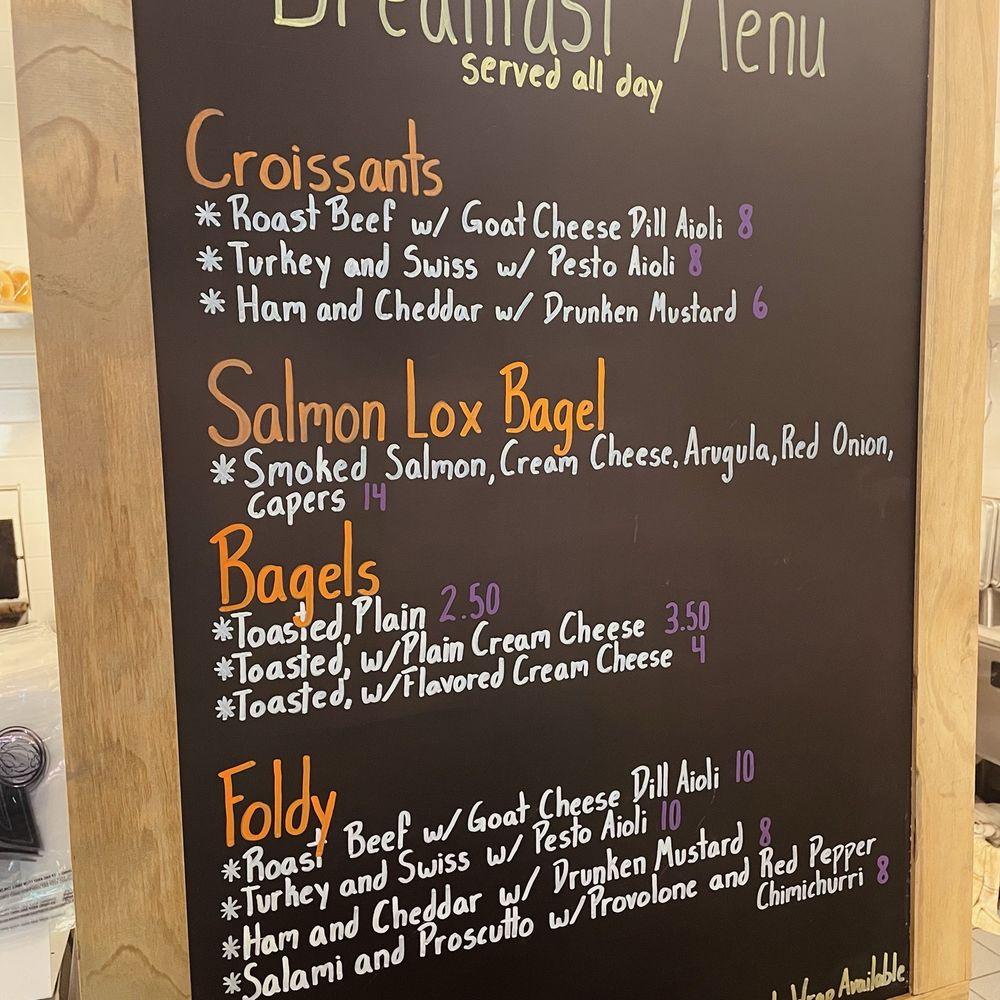 Breakfast Menu
served all day
Croissants
* Roast Beef w/ Goat Cheese Dill Aioli 8
* Turkey and Swiss w/ Pesto Aioli 8
* Ham and Cheddar w/ Drunken Mustard 6
Salmon Lox Bagel
* Smoked Salmon, Cream Cheese, Arugula, Red Onion,
capers 14
Bagels
* Toasted, Plain 2.50
* Toasted, w/Plain Cream Cheese 3.50
* Toasted, w/Flavored Cream Cheese 4
Foldy
* Roast Beef w/ Goat Cheese Dill Aioli 10
* Turkey and Swiss w/ Pesto Aioli 10
* Ham and Cheddar w/ Drunken Mustard 8
* Salami and Proscutto w/Provolone and Red Pepper
Chimichurri 8
Wrap Available